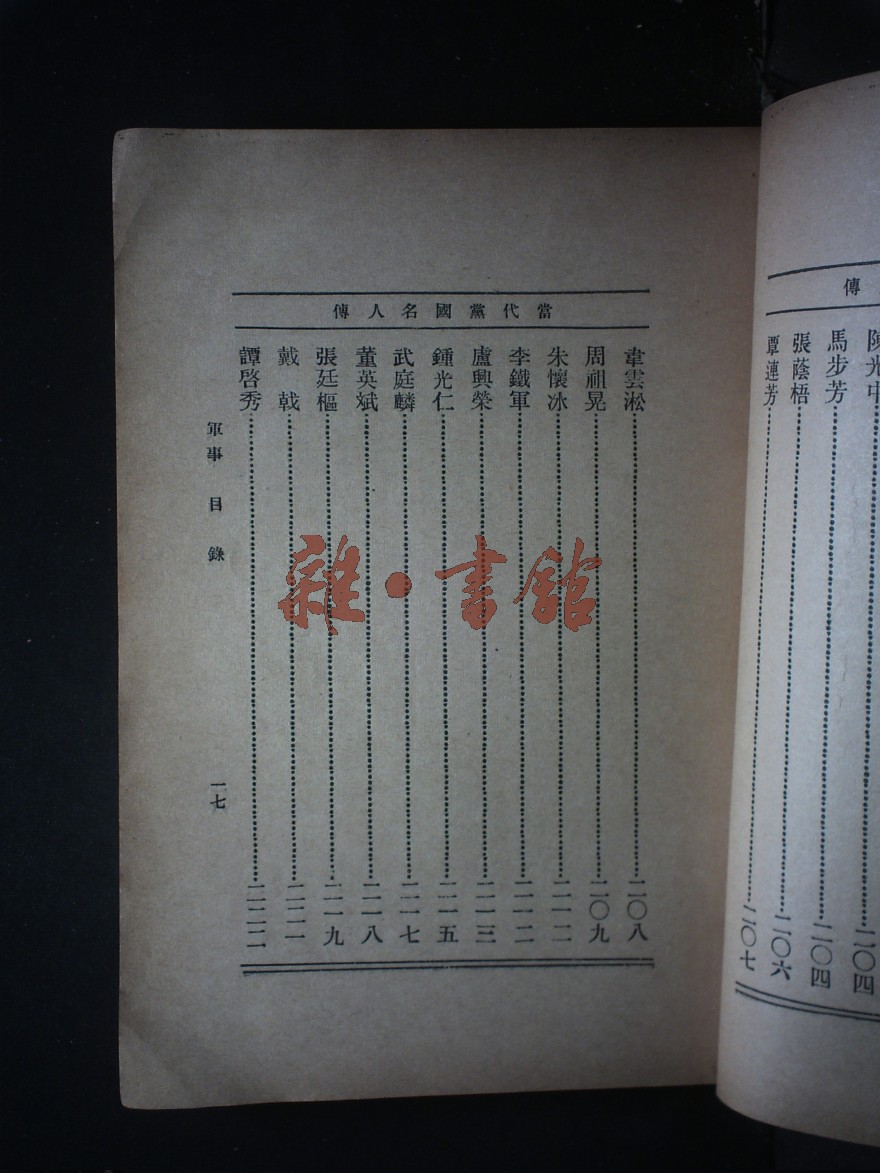 傳
陳光中……二〇四
馬步芳……二〇四
張蔭梧……二〇六
覃連芳……二〇七
當代黨國名人傳
韋雲淞……二〇八
周祖晃……二〇九
朱懷冰……二一二
李鐵軍……二一二
盧興榮……二一三
鍾光仁……二一五
武庭麟……二一七
董英斌……二一八
張廷樞……二一九
戴 戟……二二一
譚啓秀……二二二
軍事 目 錄 一七
雜·書館